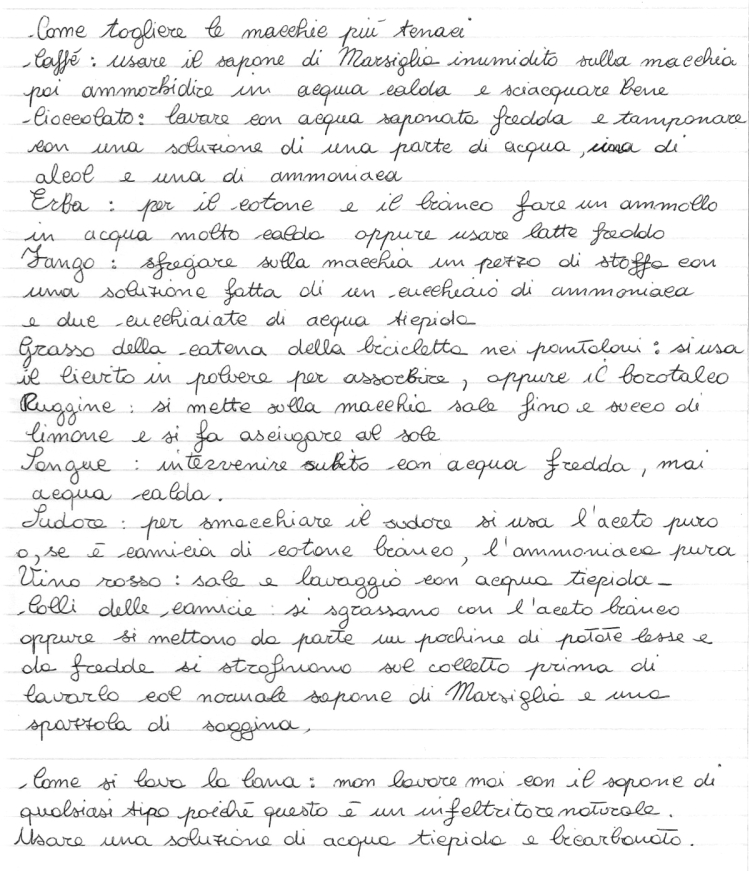 Come togliere le macchie più tenaci
Caffé : usare il sapone di Marsiglia inumidito sulla macchia
poi ammorbidire in acqua calda e sciacquare bene
Cioccolato : lavare con acqua saponata fredda e tamponare
con una soluzione di una parte di acqua, una di
alcol e una di ammoniaca
Erba : per il cotone e il bianco fare un ammollo
in acqua molto calda oppure usare latte freddo
Fango : sfregare sulla macchia un pezzo di stoffa con
una soluzione fatta di un cucchiaio di ammoniaca
e due cucchiaiate di acqua tiepida
Grasso della catena della bicicletta nei pantaloni : si usa
il lievito in polvere per assorbire, oppure il borotalco
Ruggine : si mette sulla macchia sale fino e succo di
limone e si fa asciugare al sole
Sangue : intervenire subito con acqua fredda, mai
acqua calda.
Sudore : per smacchiare il sudore si usa l'aceto puro
o, se è camicia di cotone bianco, l'ammoniaca pura
Vino rosso : sale e lavaggio con acqua tiepida -
Colli delle camicie : si sgrassano con l'aceto bianco
oppure si mettono da parte un pochine di patate lesse e
da fredde si strofinano sul colletto prima di
lavarlo col normale sapone di Marsiglia e una
spazzola di saggina,
Come si lava la lana : non lavare mai con il sapone di
qualsiasi tipo poiché questo è un infeltritore naturale.
Usare una soluzione di acqua tiepida e bicarbonato.